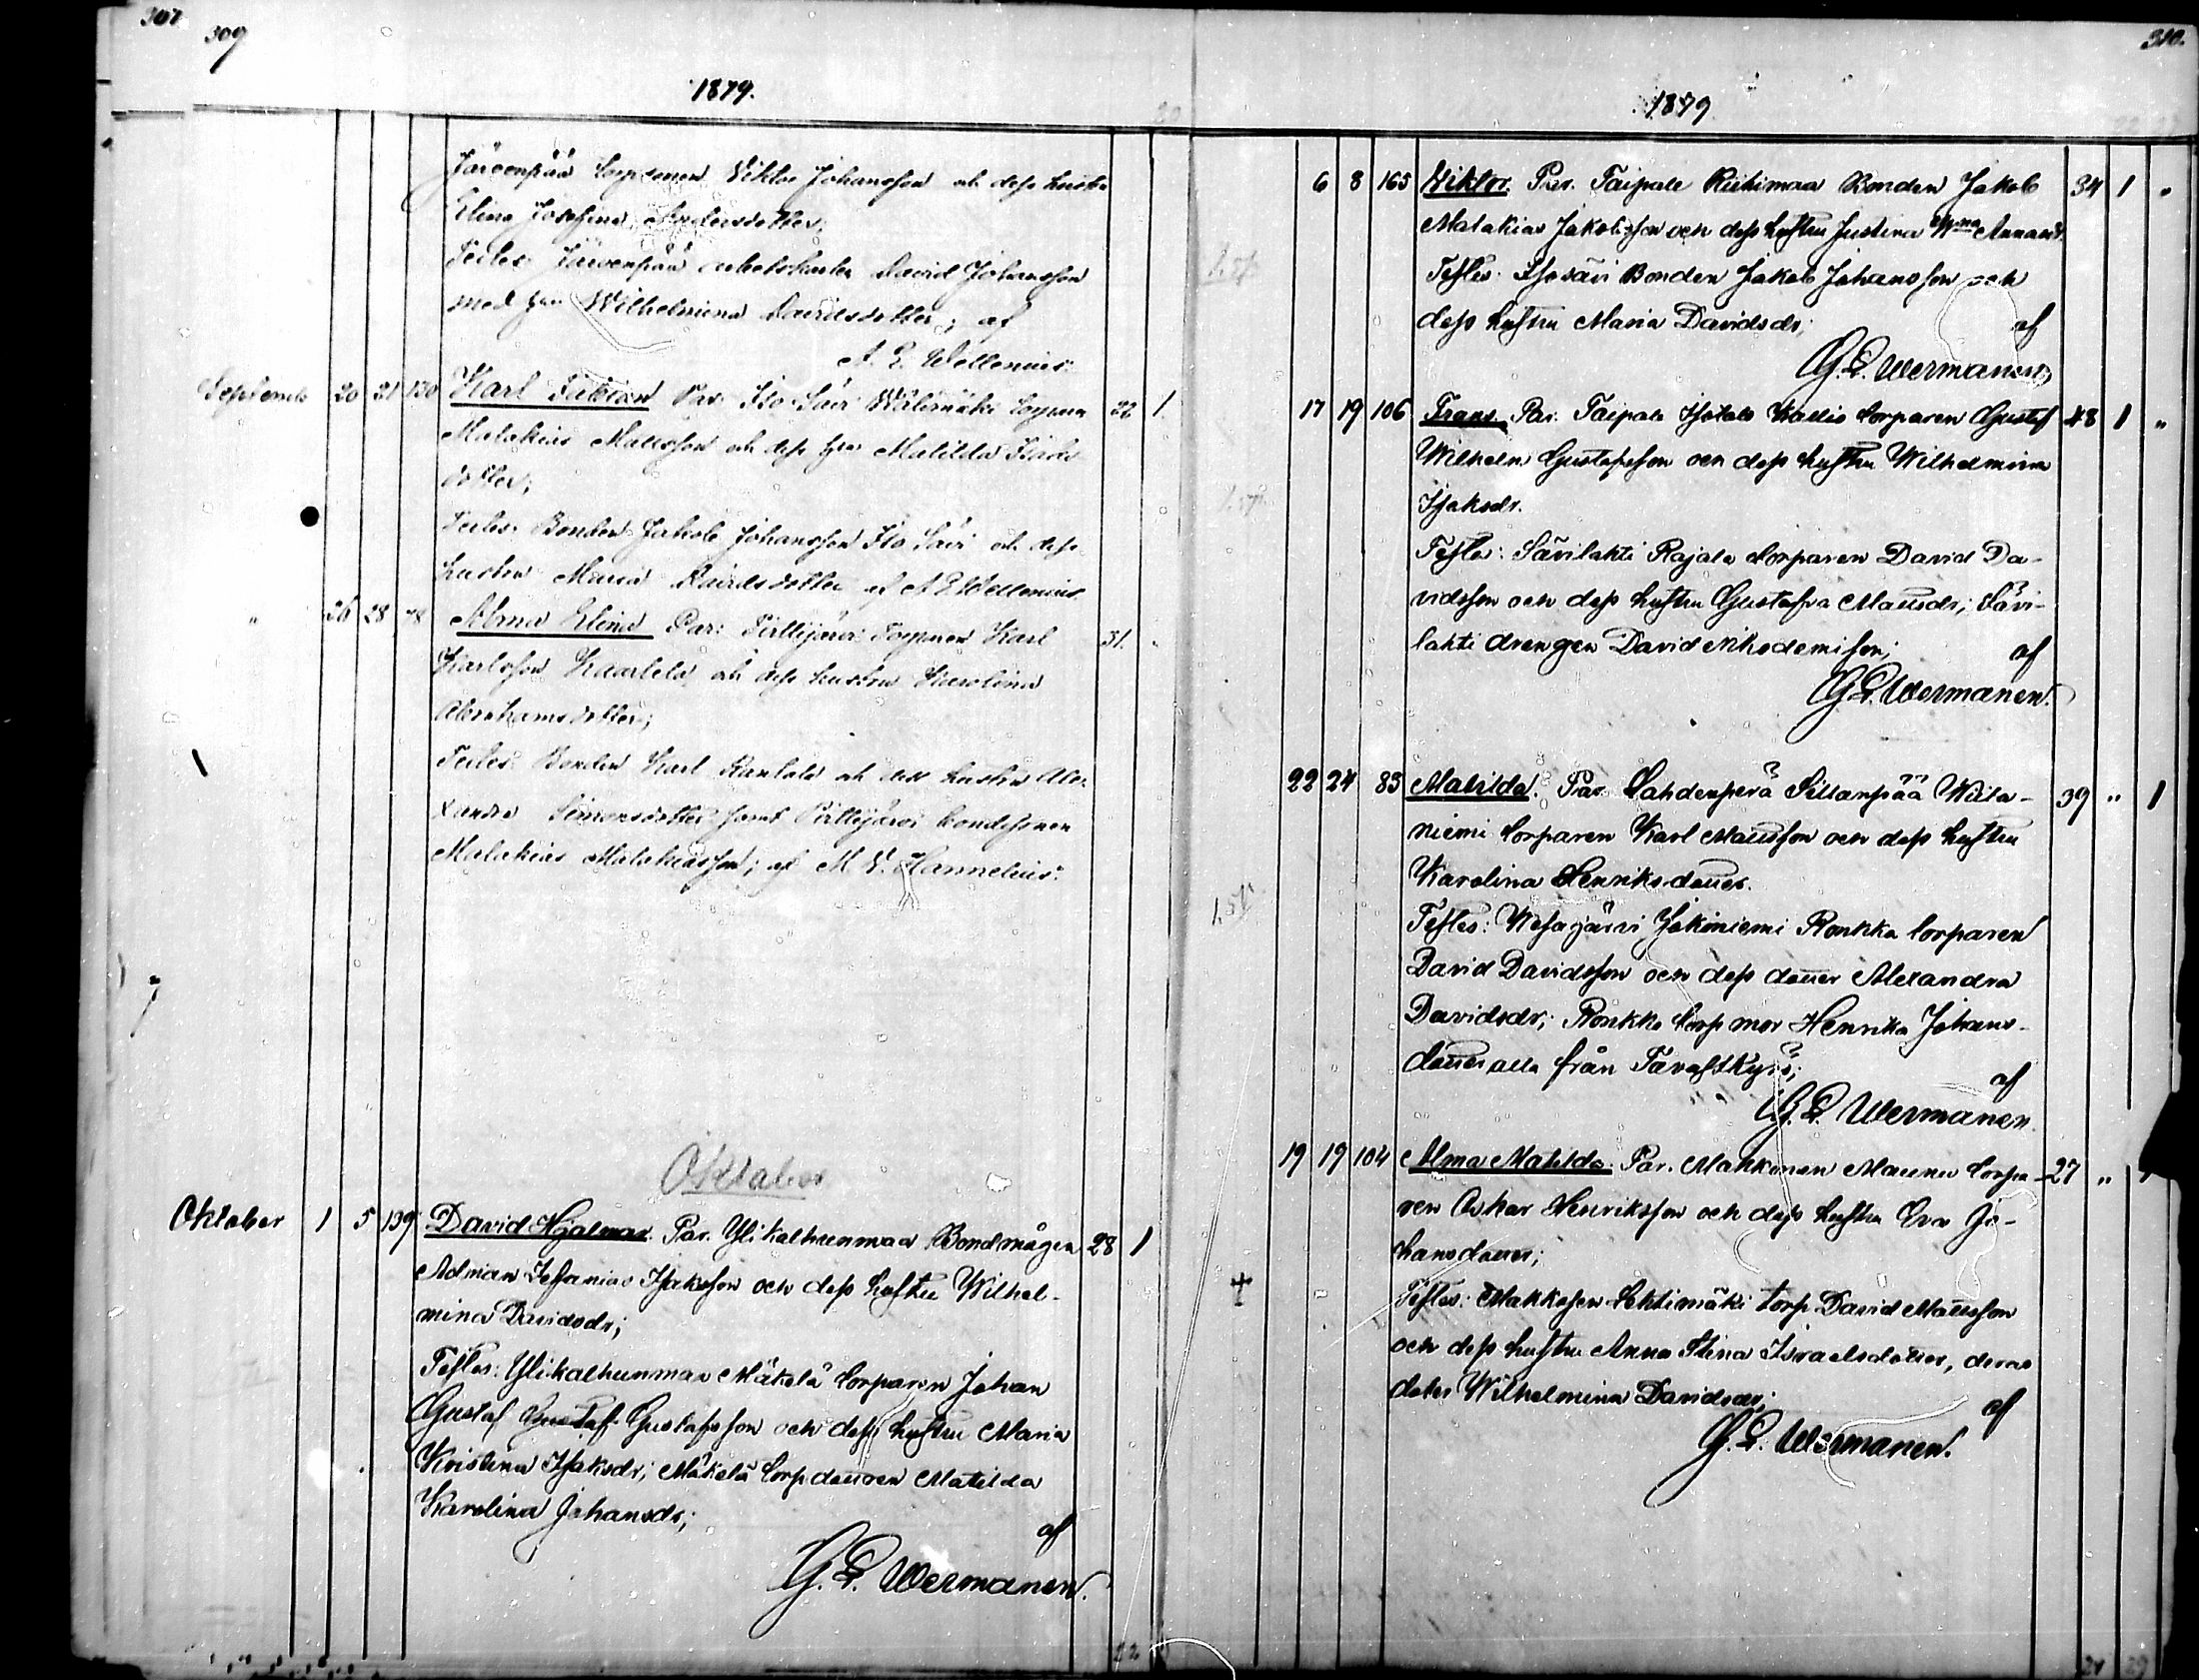 307
309
1879.
Järvenpää Viktor Johansson och dess hustru
Elina Josefina
Järvenpää David Johansson
med Wilhelmina Davidsdotter; af
A. E. Wellenius.
September 20 21 130 Karl Fabian Par. Iso Sävi 22 1.
Malakias Mattsson och dess Matilda
dotter;
Bonden Jakob Johansson Iso Sävi och dess
hustru Maria Davidsdotter af A E Wellenius
" 26 28 78 Alma Elina Par: Pirttijärvi Torparen Karl 31. "
Karlsson Kaarlela och dess hustru Karolina
Abrahamsdotter;
Bonden Karl Rantala och dess hustru Alex-
andra Simonsdotter samt Pirttijärvi bondesonen
Malakias Malakiasson; af M V. Hannelius.
Oktober
Oktober 1 5 139 David Hjalmar. Par. Ylikalhunmaa Bondmågen 28 1
Adrian Isaksson och dess hustru Wilhel-
mina Davidsdr;
Testes: Ylikalhunmaa Mäkelä torparen Johan
Gustaf Gustaf Gustafsson och dess hustru Maria
Kristina Isaksdr; Mäkelä torpdottren Matilda
Karolina Johansdr; af
G. L. Wermanen.
22
310.
1879
6 8 165 Viktor. Par. Taipale Riihimaa Bonden Jakob 34 1 "
Malakias Jakobsson och dess hustru Justina Wma Annasdr.
Testes: Isosävi Bonden Jakob Johansson och
dess hustru Maria Davidsdr; af
G. L. Wermanen
17 19 106 Frans. Par. Taipale Kallio torparen Gustaf 48 1 "
Wilhelm Gustafsson och dess hustru Wilhelmina
Isaksdr.
Testes: Sävilahti Rajala torparen David Da-
vidsson och dess hustru Gustafva Mattsdr; Sävi-
lahti drengen David Nikodemisson; af
G. L. Wermanen.
22 24 83 Matilda. Par. Lahdenperä Sillanpää Wiita- 39 " 1
niemi torparen Karl Mattsson och dess hustru
Karolina Henriksdotter.
Testes: Wesajärvi Jokiniemi Ronkka torparen
David Davidsson och dess dotter Alexandra
Davidsdr; Ronkka torp mor Henrika Johans-
dotter alla från Tavastkyrö; af
G. L. Wermanen.
19 19 104 Alma Matilda. Par. Mahkonen Maunu torpa- 27 " 1
ren Oskar Henriksson och dess hustru Eva Jo-
hansdotter;
Testes: Lehtimäki torp. David Mattsson
och dess hustru Anna Stina Israelsdotter, deras
doter Wilhelmina Davidsdr; af
G. L. Wermanen.